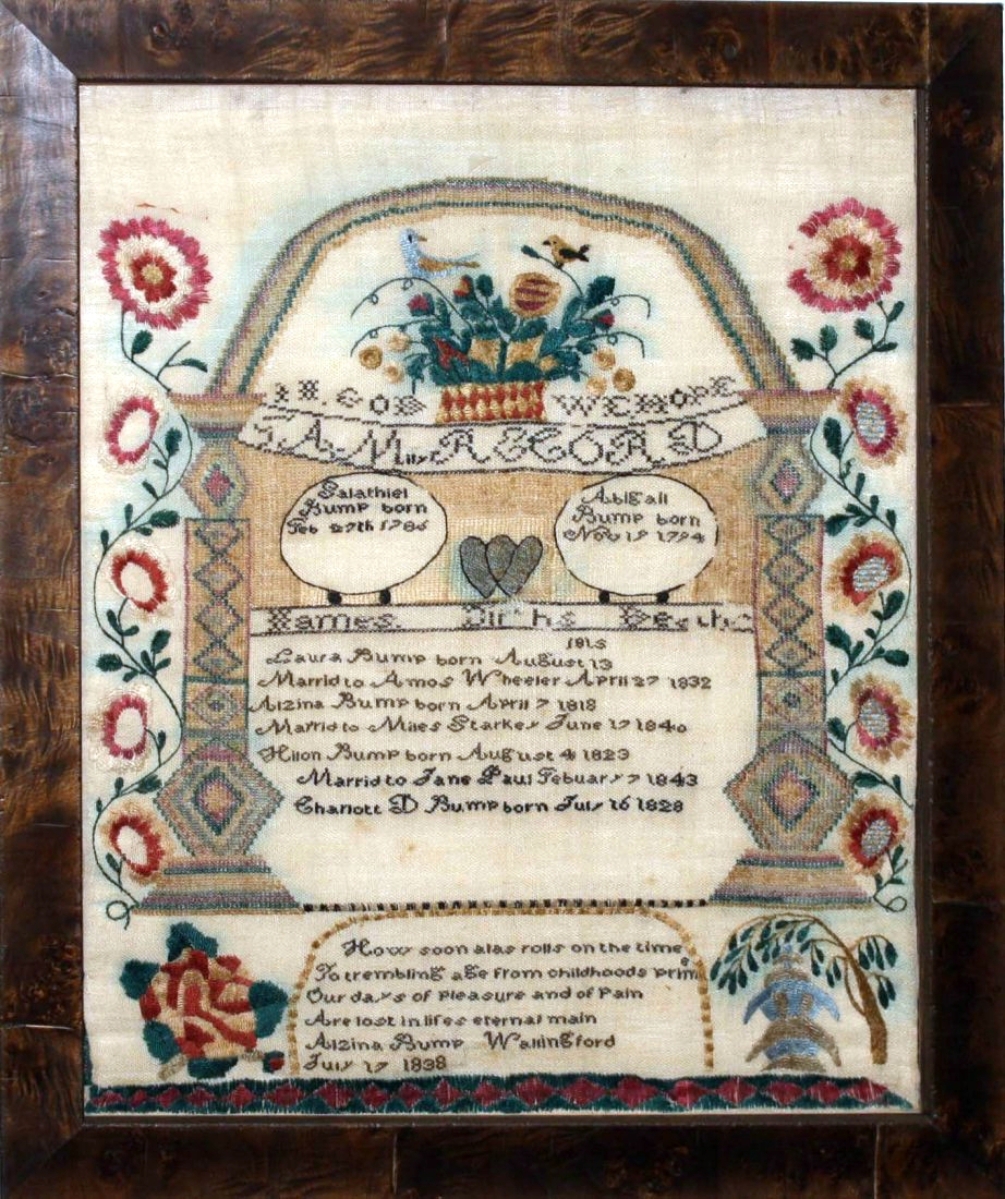 IN GOD WE HOPE
FAMily RECORD
Salathiel
Bump born
Feb 27th 1786
Abigail
Bump born
Nov 19 1794
Names. Births Deaths
1815
Laura Bump born August 13
Marrid to Amos Wheeler April 27 1832
Alzina Bump born April 7 1818
Marrid to Miles Starkey June 17 1840
Hilon Bump born August 4 1823
Marrid to Jane Paul Febuary 7 1843
Charlott D Bump born July 16 1828
How soon alas rolls on the time
To trembling age from childhoods prime
Our days of pleasure and of pain
Are lost in lifes eternal main
Alzina Bump Wallingford
July 17 1838